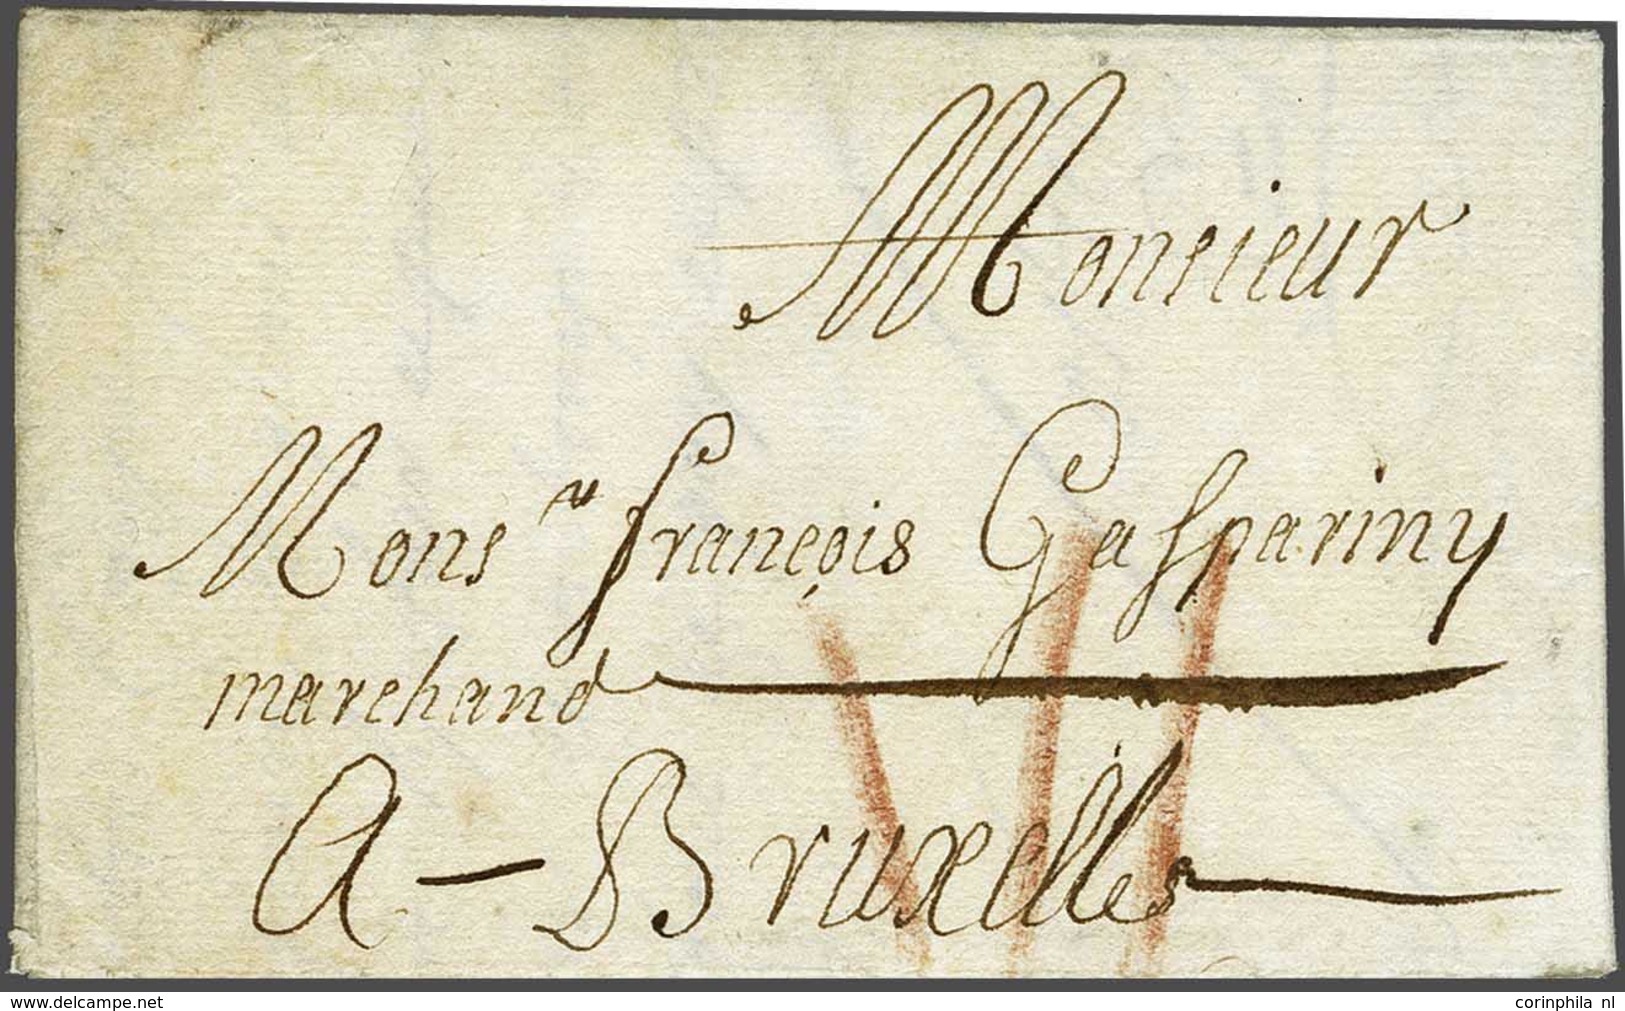 Monsieur
Mons.r françois Gaspariny
marchand
A - Bruxelles
www.delcampe.net
corinphila nl